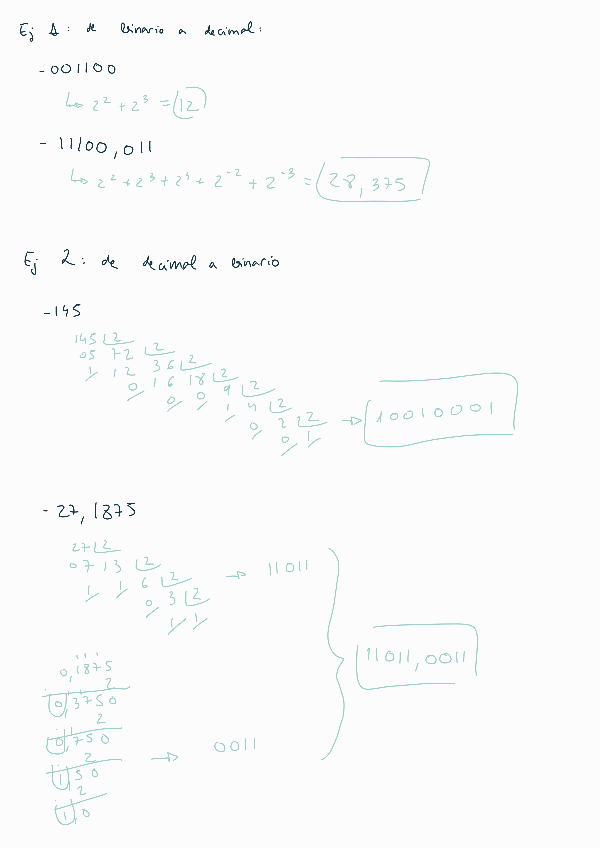 Ej 1: de binario a decimal:
- 001100
↳ 2² + 2³ = 12
- 11100,011
↳ 2² + 2³ + 2⁴ + 2⁻² + 2⁻³ = 28,375
Ej 2: de decimal a binario
- 145
145 | 2
05 72 | 2
1 12 36 | 2
0 16 18 | 2
0 0 9 | 2
1 4 | 2
0 2 | 2 → 10010001
0 1
- 27,1875
27 | 2
07 13 | 2
1 1 6 | 2 → 11011
0 3 | 2
1 1
11011,0011
0,1875
2
0,3750
2
0,750
2
→ 0011
1,50
2
1,0